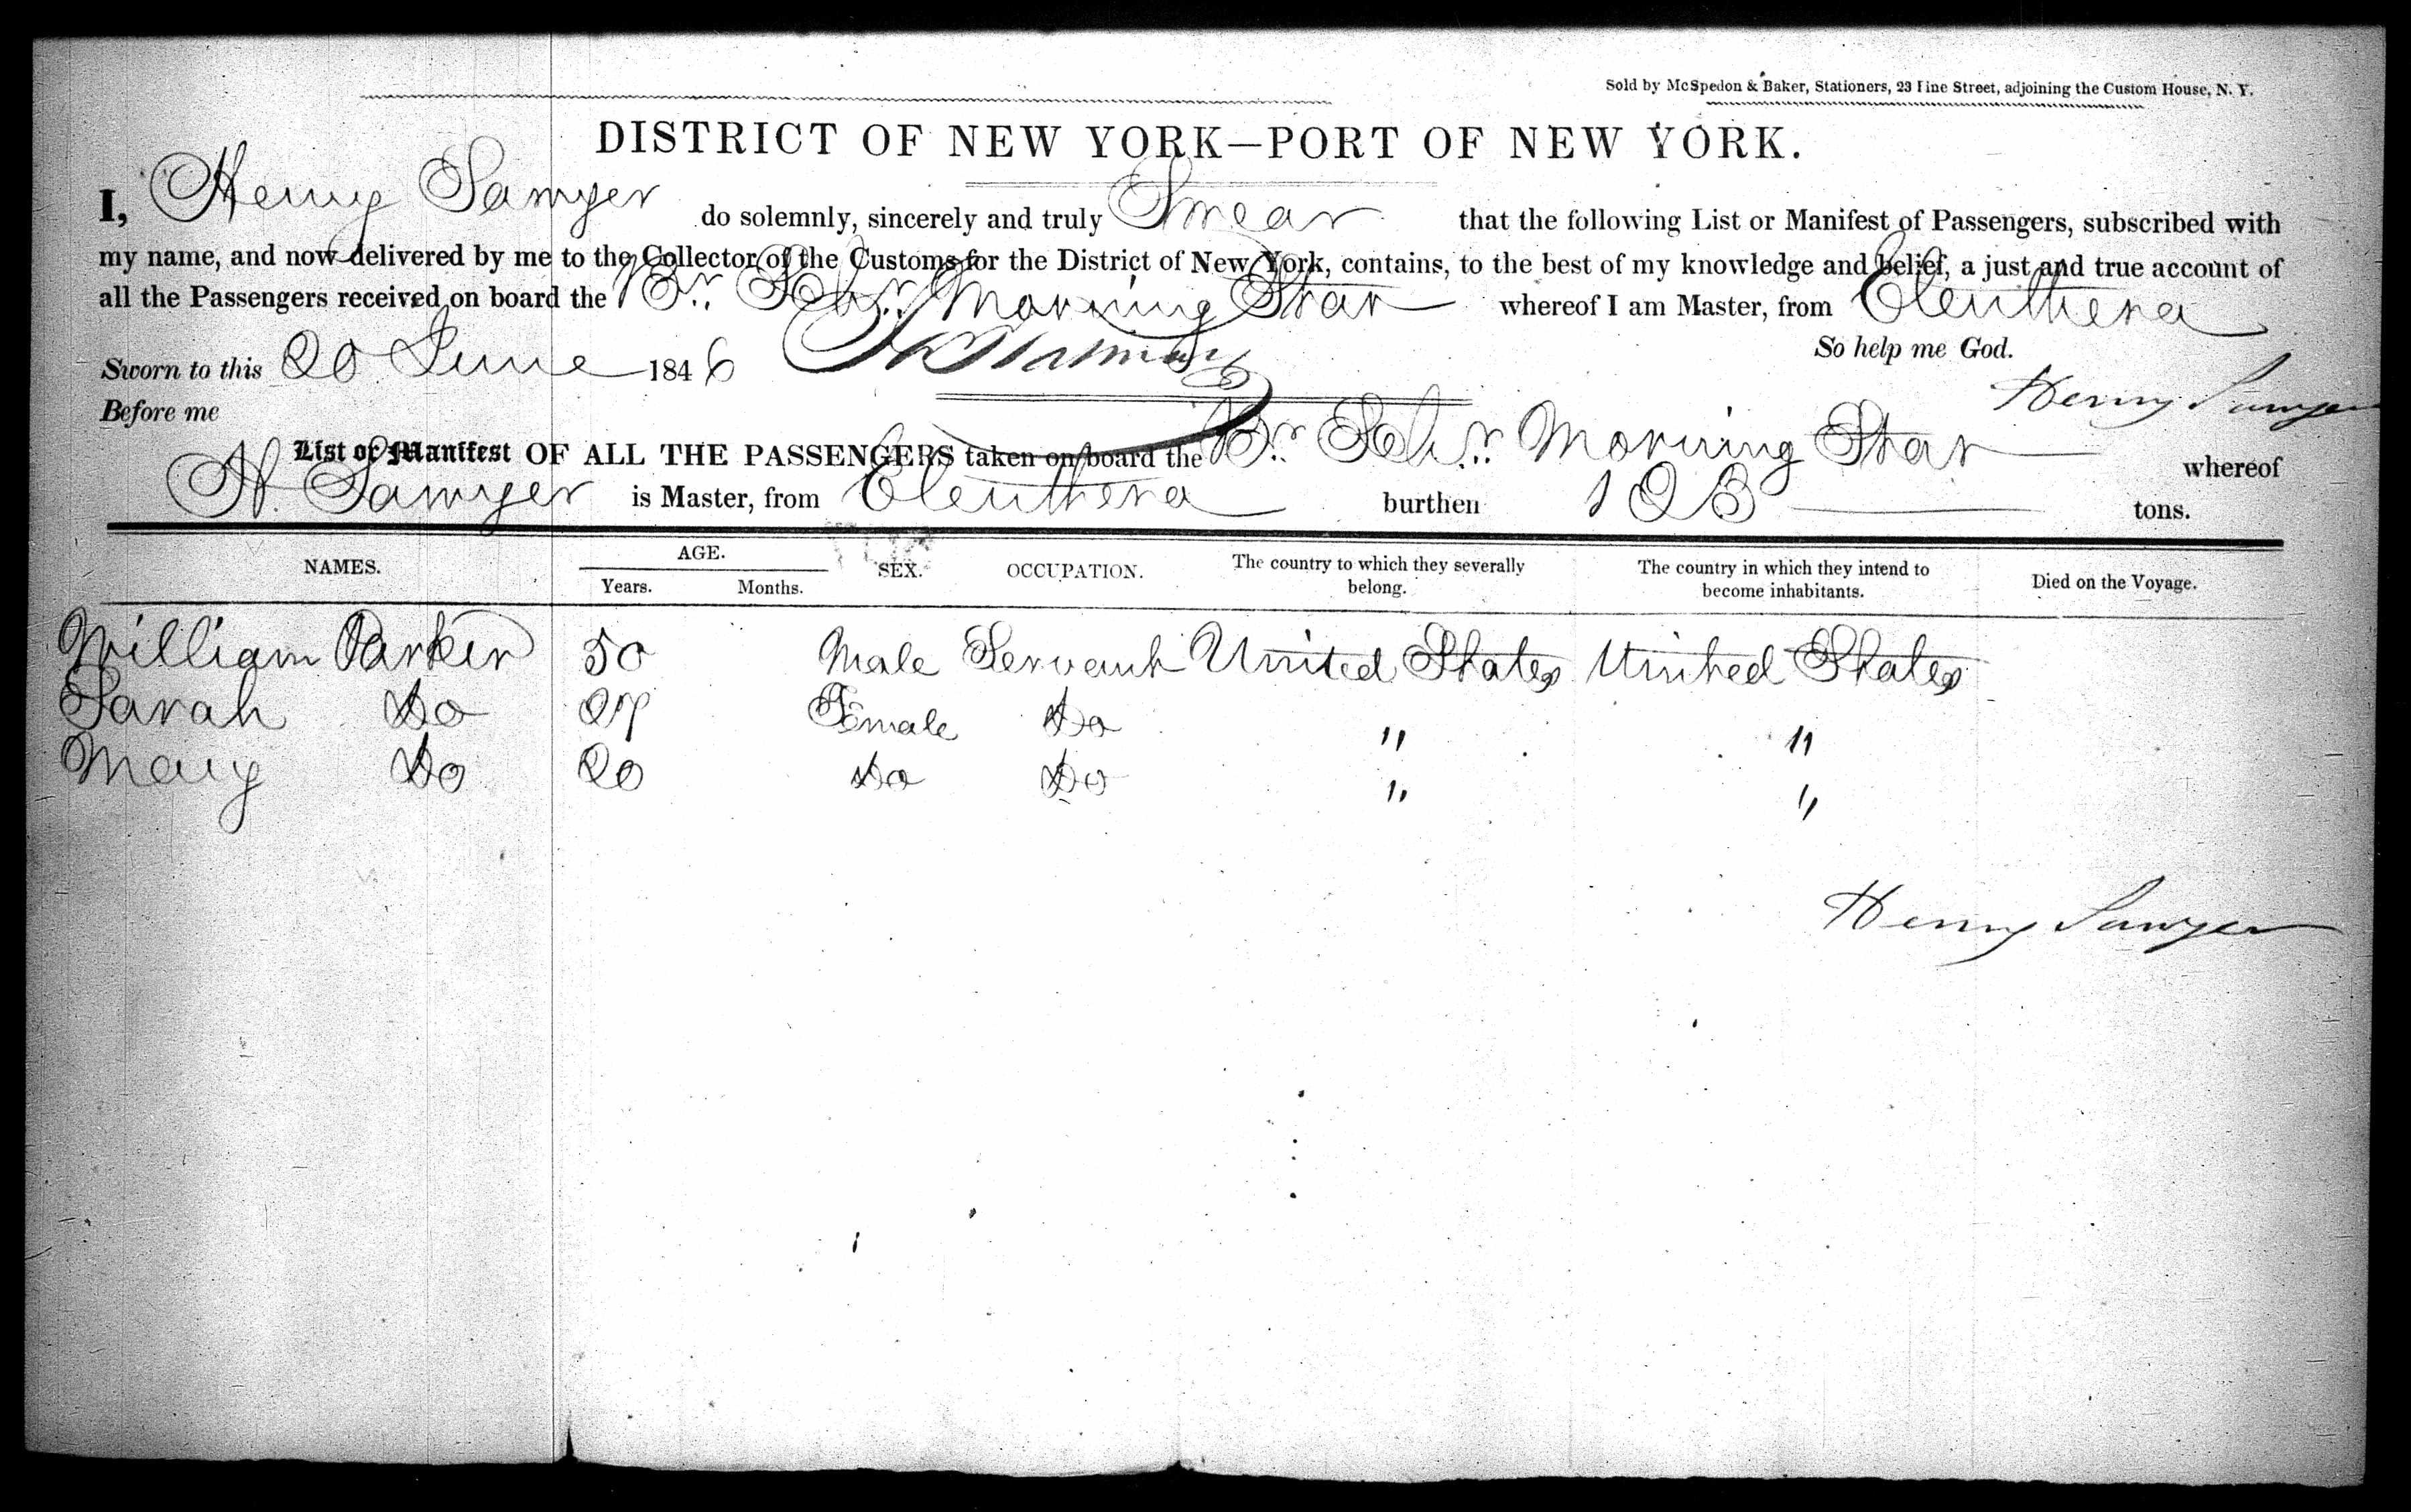 Sold by McSpedon & Baker, Stationers, 23 Pine Street, adjoining the Custom House, N. Y.
DISTRICT OF NEW YORK—PORT OF NEW YORK.
I, Henry Sawyer do solemnly, sincerely and truly Swear that the following List or Manifest of Passengers, subscribed with
my name, and now delivered by me to the Collector of the Customs for the District of New York, contains, to the best of my knowledge and belief, a just and true account of
all the Passengers received on board the Br. Schr. Morning Star whereof I am Master, from Eleuthera
So help me God.
Sworn to this 20 June 1846
Henry Sawyer
Before me
List or Manifest OF ALL THE PASSENGERS taken on board the Br. Schr. Morning Star whereof
H. Sawyer is Master, from Eleuthera burthen 123 tons.
NAMES. AGE. Years. Months. SEX. OCCUPATION. The country to which they severally belong. The country in which they intend to become inhabitants. Died on the Voyage.
William Parker 50 Male Servant United States United States
Sarah Do 27 Female Do " "
Mary Do 20 Do Do " "
Henry Sawyer